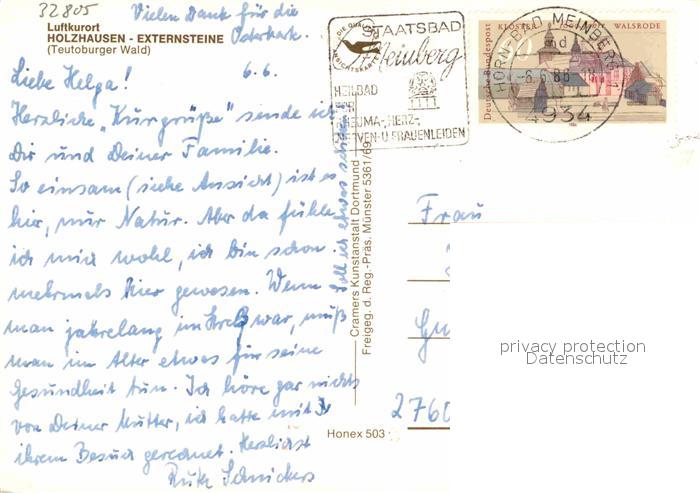 32805
Vielen Dank für die
Osterkarte.
Luftkurort
HOLZHAUSEN - EXTERNSTEINE
(Teutoburger Wald)
6.6.
Liebe Helga!
Herzliche „Kurgrüße" sende ich
Dir und Deiner Familie.
So einsam (siehe Ansicht) ist es
hier, nur Natur. Aber da fühle
ich mich wohl, ich bin schon
mehrmals hier gewesen. Wenn
man jahrelang im Streß war, muß
man im Alter etwas für seine
Gesundheit tun. Ich höre gar nichts
von Deiner Mutter, ich hatte mit
ihrem Besuch gerechnet. Herzlichst
Ruth Schnickers
Soll ich etwas
DIE QUALITÄTS
ANSICHTSKARTE
STAATSBAD
Meinberg
HEILBAD
FÜR
RHEUMA-, HERZ-,
NERVEN- U. FRAUENLEIDEN
HORN-BAD MEINBERG 1
-6.6.86-18
4934
Deutsche Bundespost
KLOSTER WALSRODE
60
Cramers Kunstanstalt Dortmund
Freigeg. d. Reg.-Präs. Münster 5361/69
Honex 503
Frau
2760
privacy protection
Datenschutz